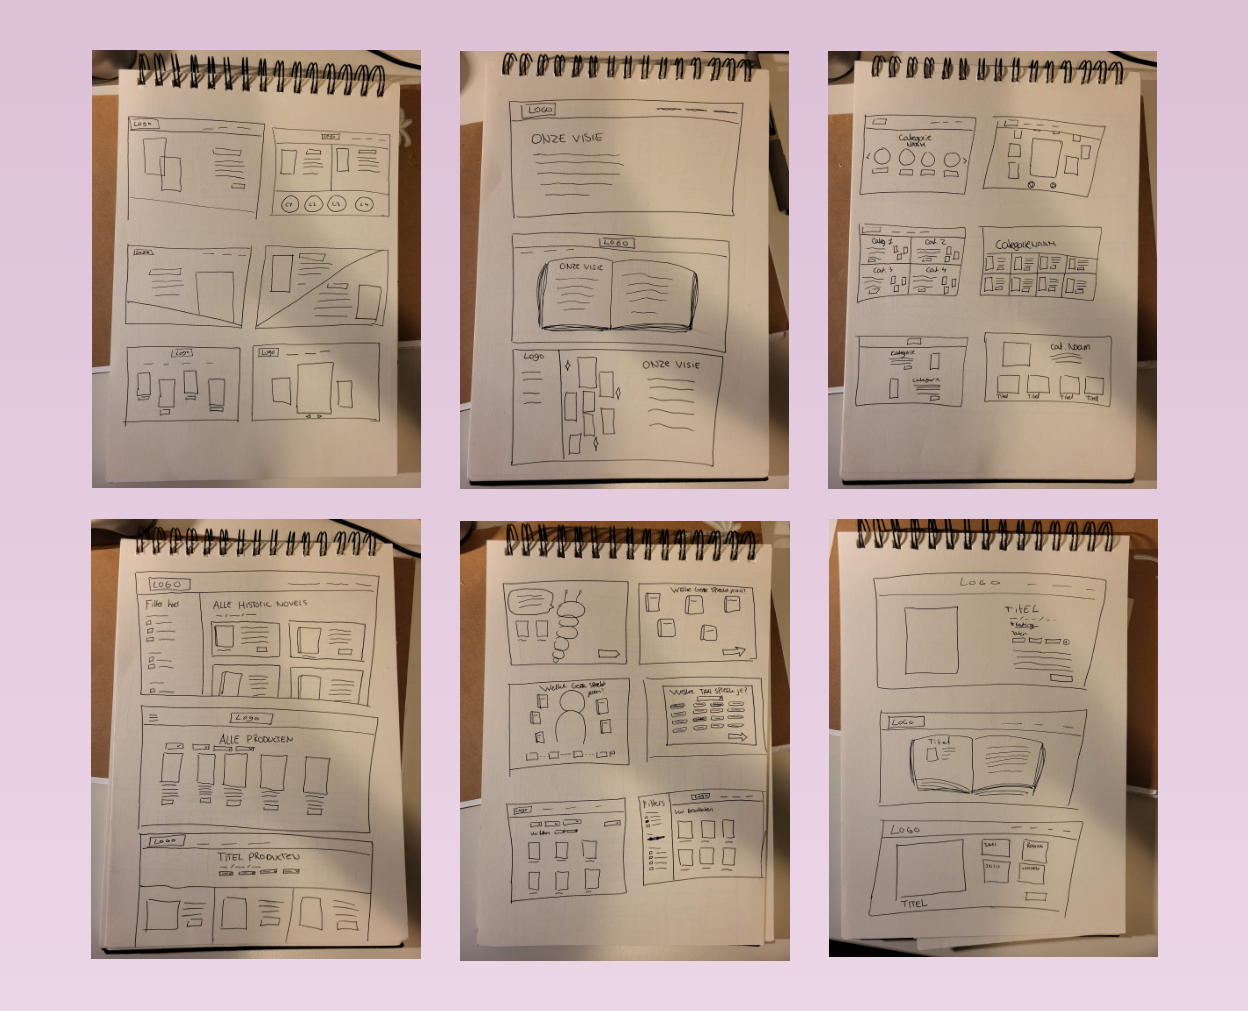 Logo
Logo
C1 C2 C3 C4
Logo
Logo
Logo
LOGO
ONZE VISIE
LOGO
ONZE VISIE
LOGO
ONZE VISIE
Categorie
NAAM
Categ 1
Cat. 2
Cat. 3
Cat 4
CategorieNAAM
Categorie
Categorie
Cat. Naam
Titel
Titel
Titel
Titel
LOGO
Filter hier
ALLE HISTORIC NOVELS
Logo
ALLE PRODUCTEN
LOGO
TITEL PRODUCTEN
Welke Genre spreekt jou aan?
Welke Genre spreekt
jou aan?
WELKE TAAL SPREEK JE?
Logo
Filters
Logo
Uw resultaten
LOGO
TITEL
Rating
Talen
LOGO
Titel
LOGO
TAAL
TITEL